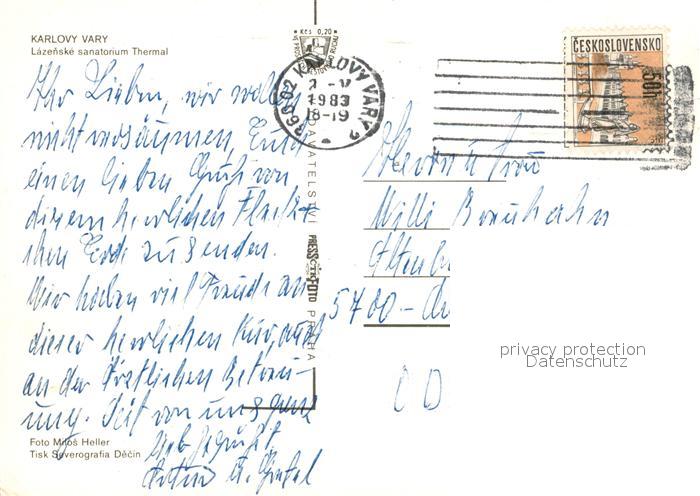 KARLOVY VARY
Lázeňské sanatorium Thermal
Ihr Lieben, wir wollen
nicht versäumen, Euch
einen lieben Gruß von
diesem herrlichen Fleck-
chen Erde zu senden.
Wir haben viel Freude an
dieser herrlichen Kur, auch
an der ärztlichen Betreu-
ung. Seid von uns ganz
lieb gegrüßt.
Foto Miloš Heller
Tisk Severografia Děčín
Kčs 0,20
VYDAVATELSTVÍ
PRESSFOTO
PRAHA
360 02 KARLOVY VARY 2
1983
18-19
ČESKOSLOVENSKO
50h
Herrn u Frau
Willi Brauhahn
5700 -
DD
privacy protection
Datenschutz